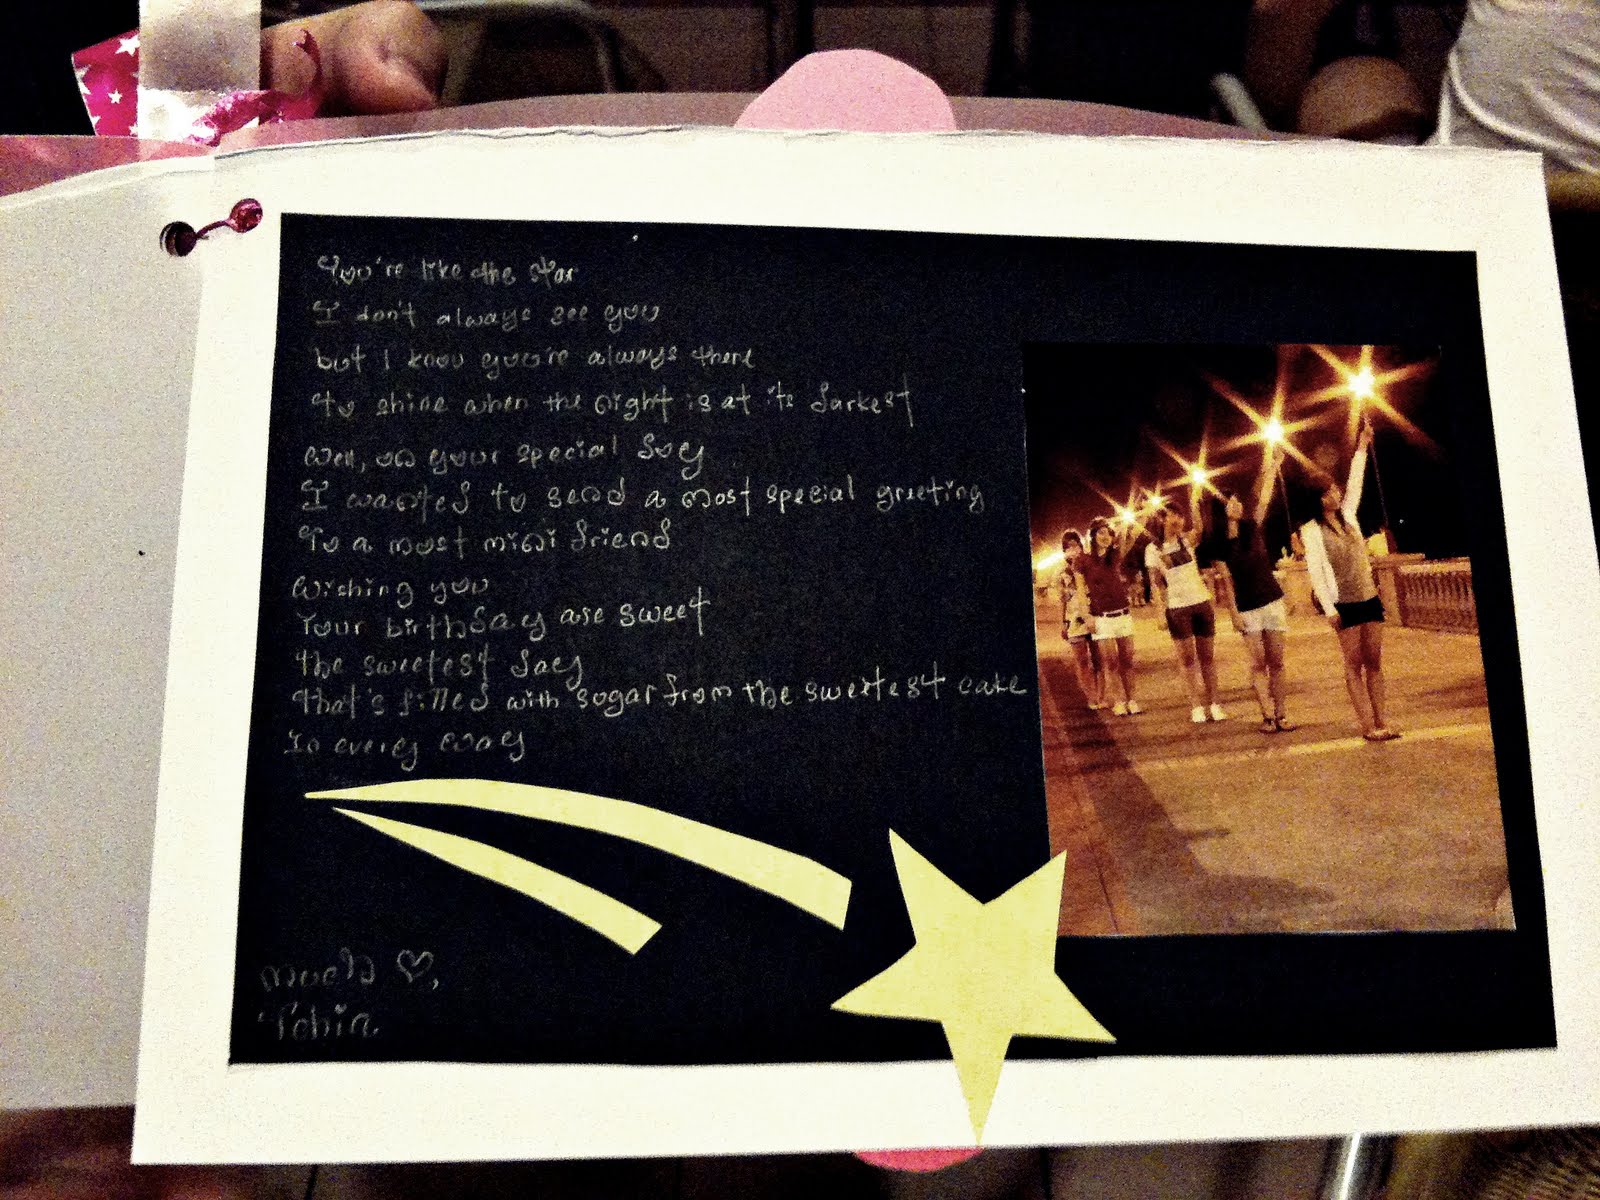 You're like the star
I don't always see you
but I know you're always there
To shine when the night is at its darkest
Well, on your special day
I wanted to send a most special greeting
To a most mini friend
Wishing you
Your birthday are sweet
The sweetest day
That's filled with sugar from the sweetest cake
In every way
much ♡,